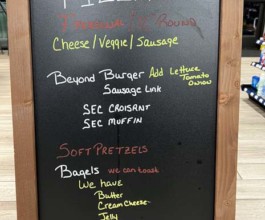 Cheese/Veggie/Sausage
Beyond Burger Add Lettuce
Tomato
Onion
Sausage Link
SEC CROISANT
SEC MUFFIN
SOFT PRETZELS
Bagels we can toast
We have
Butter
Cream Cheese
Jelly